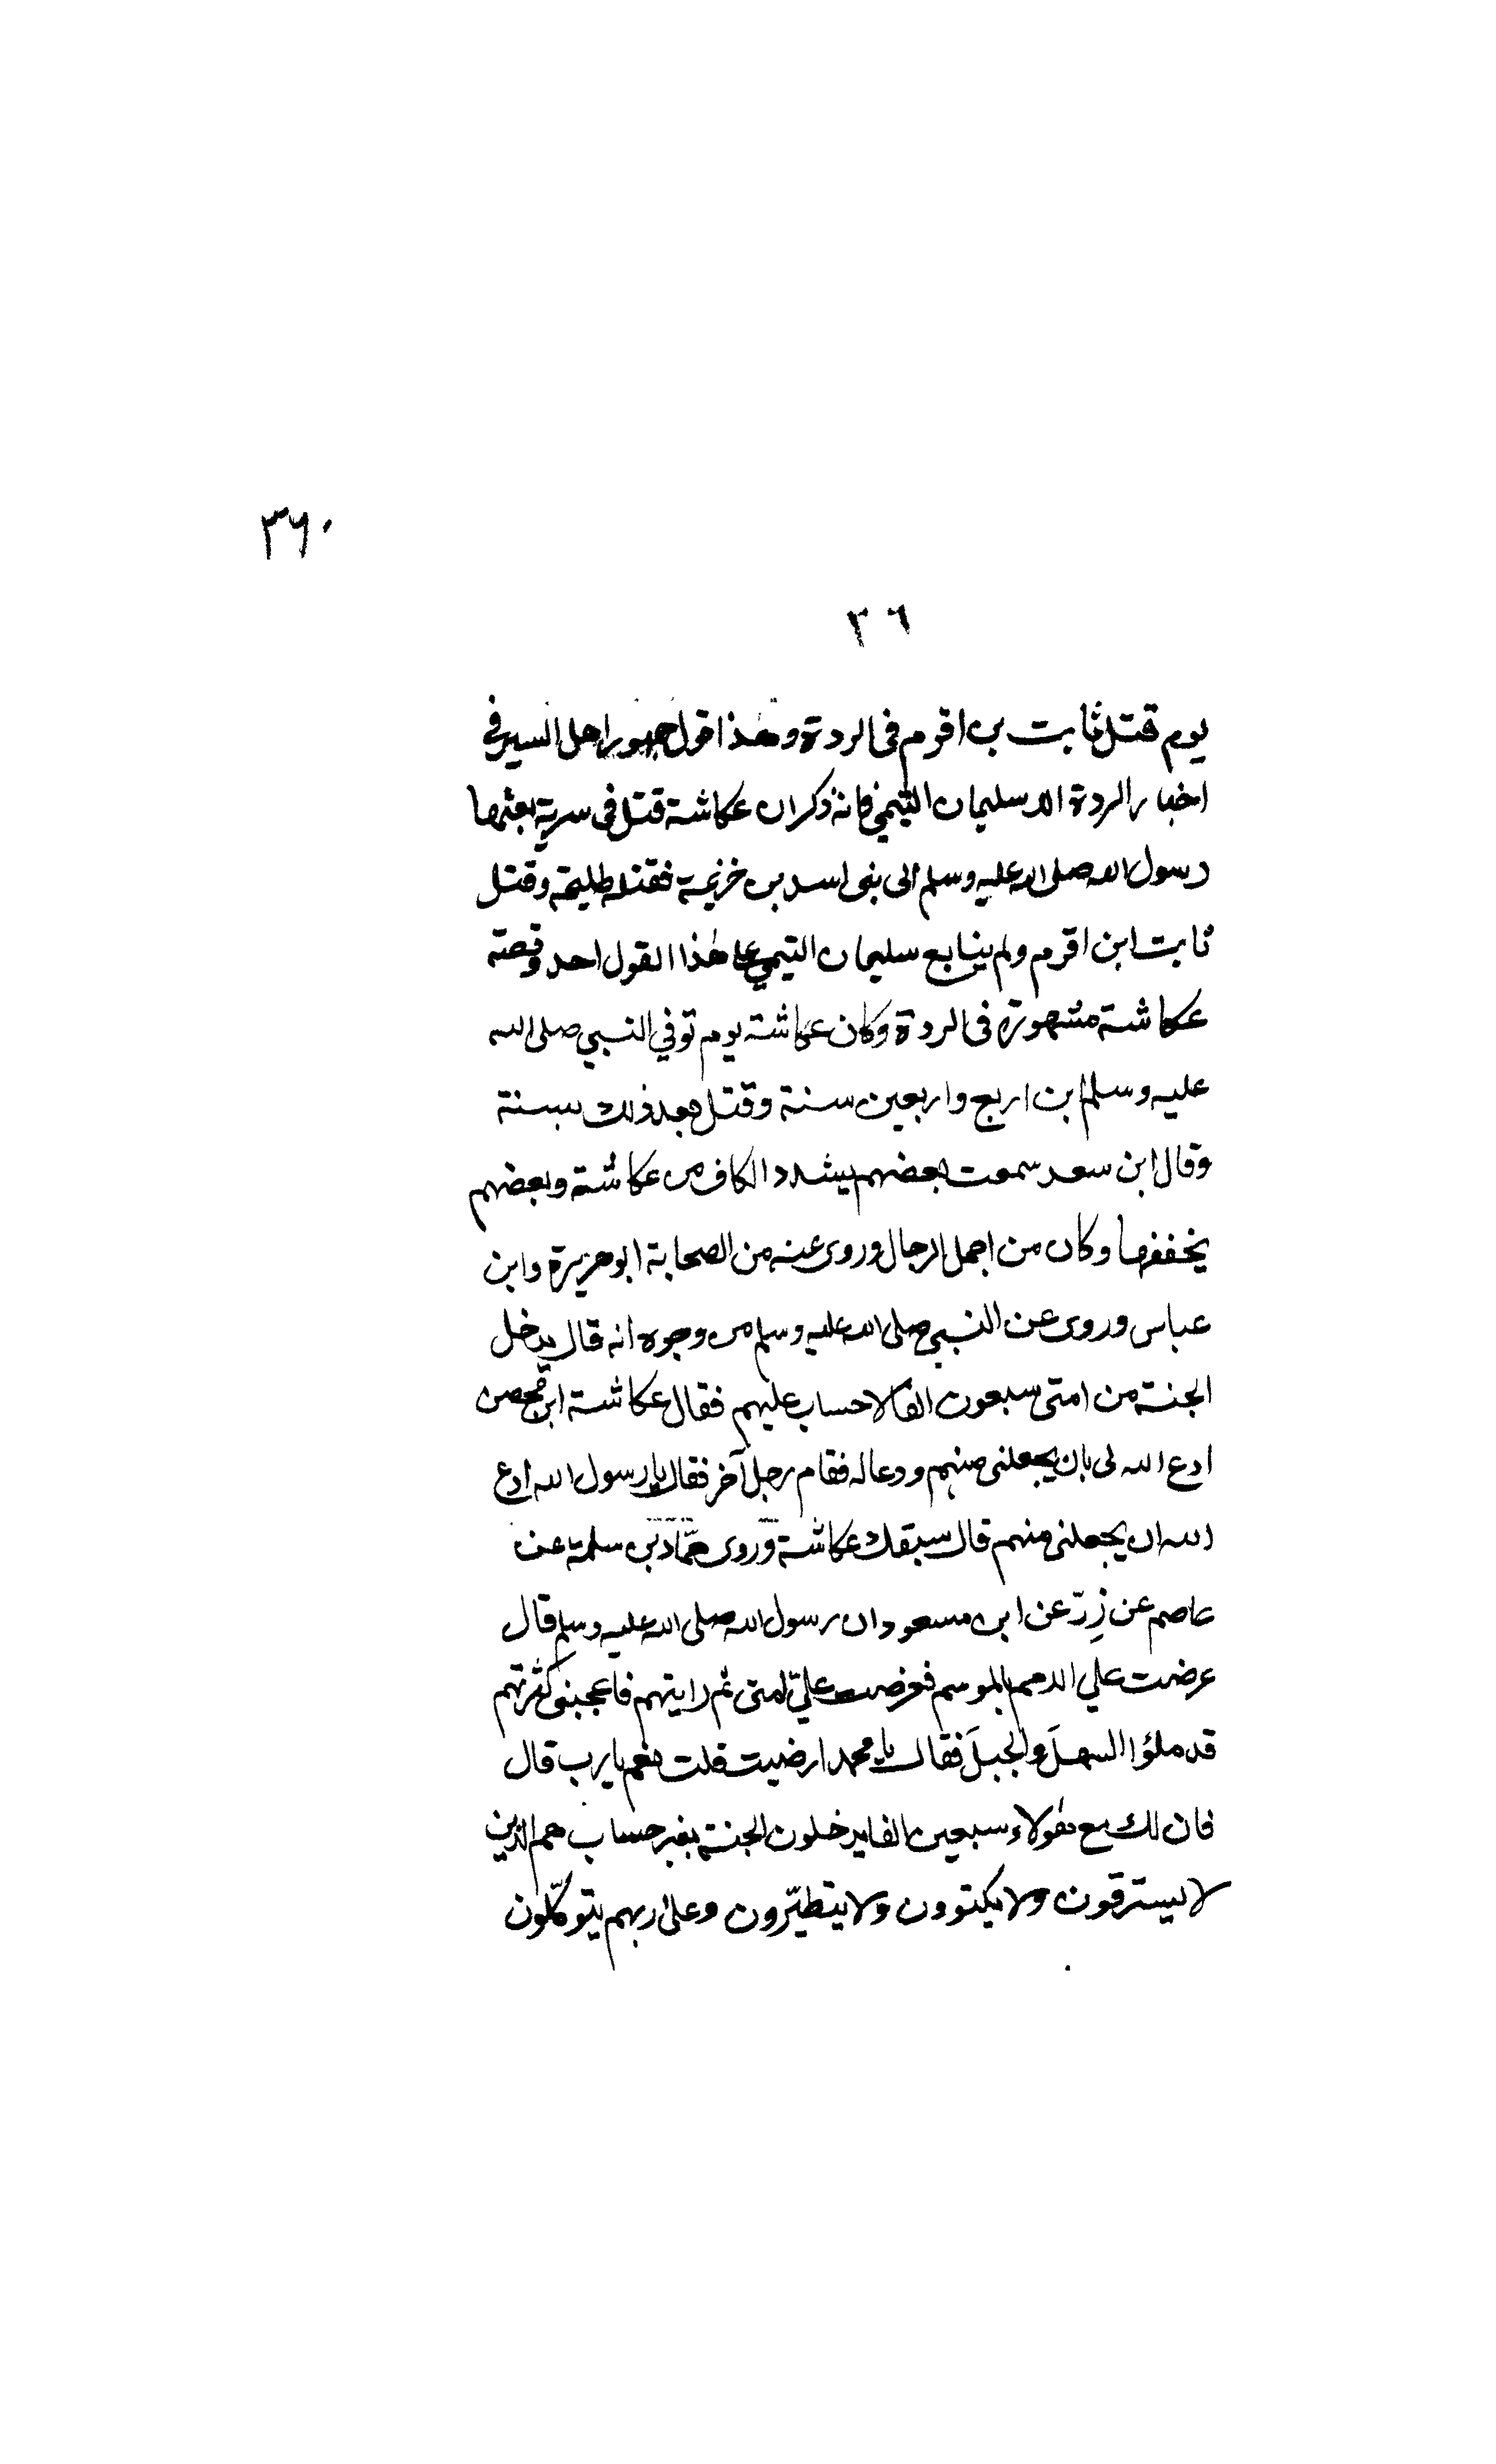 ٣٦٠
٣٦
يوم قتل ثابت بن اقرم فى الردة وهذا قول جمهور اهل السير فى
اخبار الردة الا سليمان التيمى فانه ذكر ان عكاشة قتل فى سرية بعثها
رسول الله صلى الله عليه وسلم الى بنى اسد بن خزيمة فقتله طليحة وقتل
ثابت ابن اقرم ولم يتابع سليمان التيمي على هذا القول احد وقصته
عكاشة مشهورة فى الردة وكان عكاشة يوم توفي النبي صلى الله
عليه وسلم ابن اربع واربعين سنة وقتل بعد ذلك بسنة
وقال ابن سعد سمعت بعضهم يشدد الكاف من عكاشة وبعضهم
يخففها وكان من اجمل الرجال وروى عنه من الصحابة ابو هريرة وابن
عباس وروى عن النبي صلى الله عليه وسلم من وجوه انه قال يدخل
الجنة من امتى سبعون الفا لا حساب عليهم فقال عكاشة ابن محصن
ادع الله لى بان يجعلنى منهم ودعا له فقام رجل آخر فقال يا رسول الله ادع
الله ان يجعلنى منهم قال سبقك عكاشة وروى حمّاد بن سلمة عن
عاصم عن زِرّ عن ابن مسعود ان رسول الله صلى الله عليه وسلم قال
عرضت علي الامم بالموسم فعرضت عليّ امتى ثم رايتهم فاعجبنى كثرتهم
قد ملؤا السهلَ والجبلَ فقال يا محمد ارضيت قلت نعم يا رب قال
فان لك مع هٰولاء سبعين الفا يدخلون الجنة بغير حساب هم الذين
لا يسترقون ولا يكتوون ولا يتطيّرون وعلى ربهم يتوكّلون